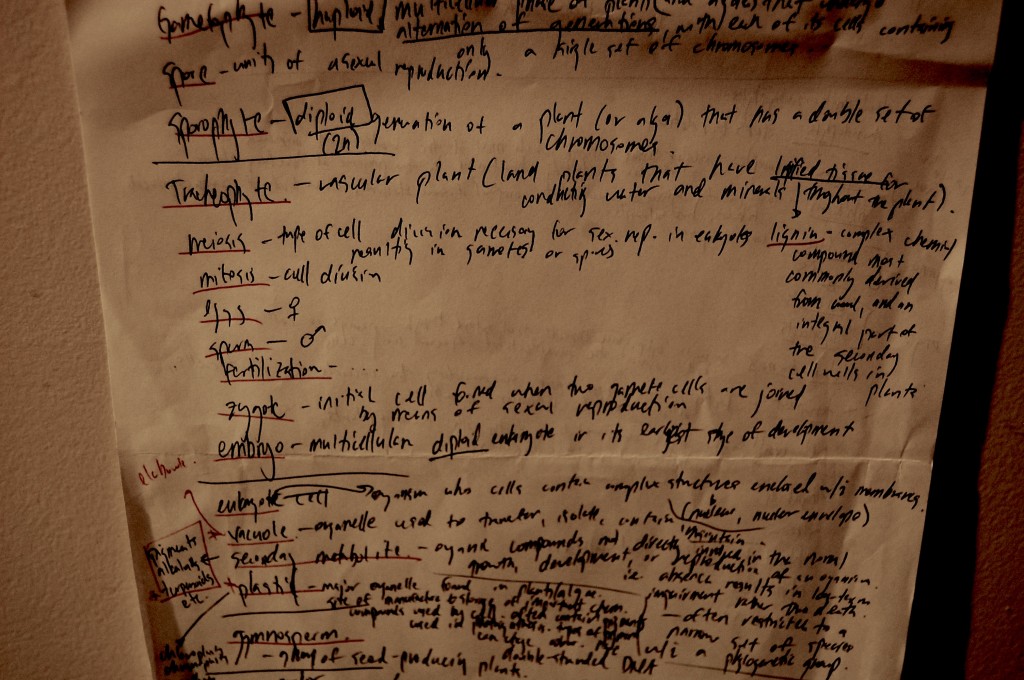 Gametophyte - haploid multicellular phase of plants (and algae) that undergo
alternation of generations, with each of its cells containing
only a single set off chromosomes
spore - units of asexual reproduction).
sporophyte - diploid generation of a plant (or alga) that has a double set of
(2n) chromosomes.
Tracheophyte - vascular plant (land plants that have lignified tissue for
conducting water and minerals throughout the plant).
meiosis - type of cell division necessary for sex. rep. in eukaryotes
resulting in gametes or spores
lignin - complex chemical
compound most
commonly derived
from wood, and an
integral part of
the secondary
cell walls in
plants
mitosis - cell division
eggs - ♀
sperm - ♂
fertilization - ....
zygote - initial cell formed when two gamete cells are joined
by means of sexual reproduction
embryo - multicellular diploid eukaryote in its earliest stage of development
eukaryote cell organism who cells contain complex structures enclosed w/i membranes
(nucleus, nuclear envelope)
vacuole - organelle used to transfer, isolate, contain
maintain
secondary metabolite - organic compounds not directly involved in the normal
growth, development, or reproduction of an organism.
i.e. absence results in long-term
impairment rather than death
- often restricted to a
narrow set of species
w/i a phylogenetic group.
pigments
alkaloids
etc.
plastid - major organelle found in plants/algae
site of manufacture & storage of important chem.
compounds used by cell. often contain pigments
used in photosynthesis. types of pigment
can change color.
double-stranded DNA
gymnosperm
- group of seed-producing plants.